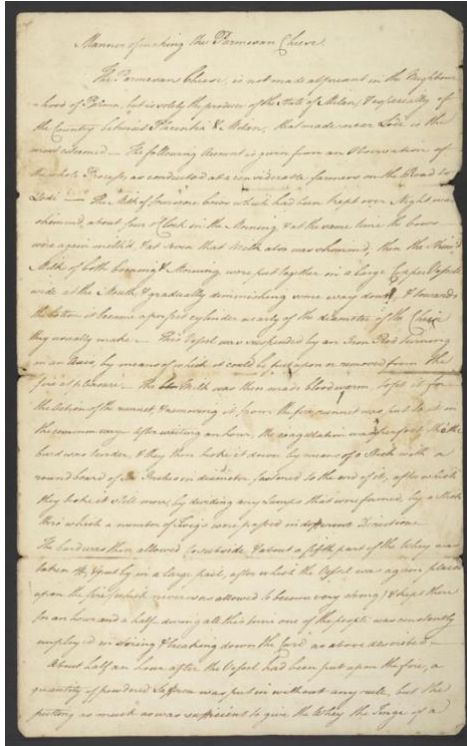 Manner of making the Parmesan Cheese.
The Parmesan Cheese, is not made at present in the Neighbour
-hood of Parma, but is solely the produce of the State of Milan, & especially of
the Country between Placentia & Milan, that made near Lodi is the
most esteemed — The following Account is given from an Observation of
the whole Process, as conducted at a considerable farmers on the Road to
Lodi — The Milk of Cows which had been kept over Night was
skimmed, about four o'Clock in the Morning, & at the same time the Cows
were again milk'd, & at Noon that Milk also was skimmed, then the Skim'd
Milk of both Evening & Morning were put together in a large Copper Vessel
wide at the Mouth, & gradually diminishing some way down, & towards
the bottom it became a perfect cylinder nearly of the diameter of the Cheese
they usually make — This Vessel was suspended by an Iron Rod turning
on an Axis, by means of which it could be put upon or removed from the
fire at pleasure — the Milk was then made bloodwarm, to fit it for
the Action of the runnet & removing it from the fire runnet was put to it in
the common way. After waiting an hour, the coagulation was perfect, tho' the
curd was tender, & they then broke it down by means of a Stick with a
round board of Inches in diameter, fastened to the end of it, after which
they broke it still more, by dividing any Lumps that were formed, by a Stick
thro which a number of Twigs were passed in different Directions.
The Curd was then allowed to subside, & about a fifth part of the Whey was
taken off, & put by in a large pail, after which the Vessel was again placed
upon the fire (which never was allowed to become very strong) & kept there
for an hour and a half, during all this time one of the people was constantly
employed in stiring & breaking down the Curd as above described —
About half an hour after the Vessel had been put upon the fire, a
quantity of powdered Saffron was put in without any rule, but the
putting as much as was sufficient to give the Whey the Tinge of a